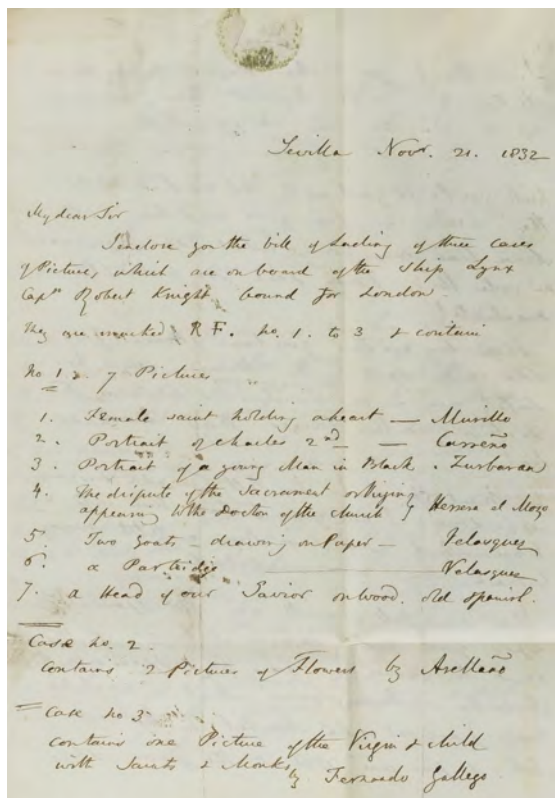 Sevilla Novr. 21. 1832
My dear Sir
I inclose you the bill of Lading of three Cases
of Pictures, which are on board of the Ship Lynx
Capn. Robert Knight bound for London.
They are marked RF. No. 1. to 3 & contain
No 1. 7 Pictures
1. Female saint holding a heart — Murillo
2. Portrait of Charles 2nd — Carreño
3. Portrait of a young Man in Black . Zurbaran
4. The dispute of the Sacrament or Virgin
appearing to the Doctors of the Church } Herrera el Mozo
5. Two Goats – drawing on Paper – Velasquez
6. a Partridge — Velasquez
7. a Head of our Savior on wood. old Spanish.
Case No. 2.
contains 2 Pictures of Flowers by Arellaño
Case No 3
contains one Picture of the Virgin & child
with Saints & Monks by Fernando Gallego